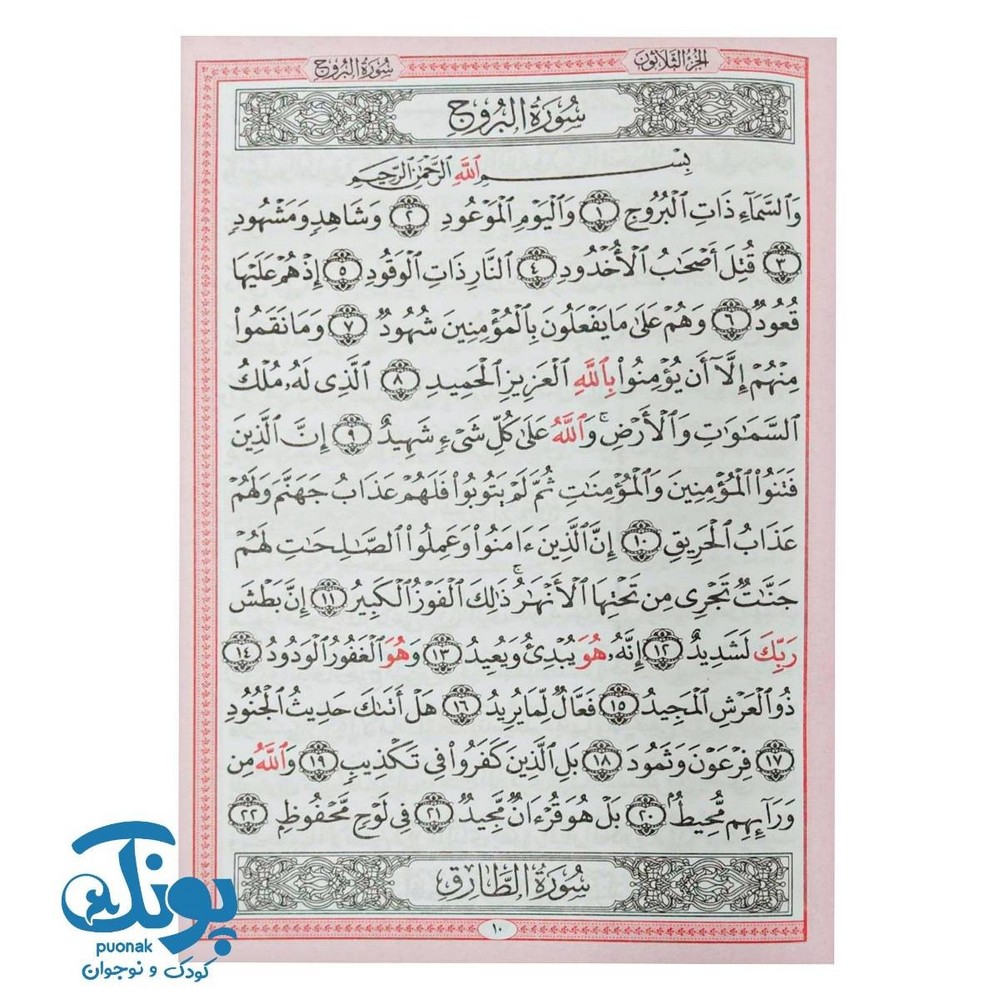 الجزء الثلاثون
سورة البروج
سُورَةُ البُرُوجِ
بِسْمِ ٱللَّهِ ٱلرَّحْمَٰنِ ٱلرَّحِيمِ
وَٱلسَّمَآءِ ذَاتِ ٱلْبُرُوجِ ١ وَٱلْيَوْمِ ٱلْمَوْعُودِ ٢ وَشَاهِدٍ وَمَشْهُودٍ
٣ قُتِلَ أَصْحَٰبُ ٱلْأُخْدُودِ ٤ ٱلنَّارِ ذَاتِ ٱلْوَقُودِ ٥ إِذْ هُمْ عَلَيْهَا
قُعُودٌ ٦ وَهُمْ عَلَىٰ مَا يَفْعَلُونَ بِٱلْمُؤْمِنِينَ شُهُودٌ ٧ وَمَا نَقَمُوا۟
مِنْهُمْ إِلَّآ أَن يُؤْمِنُوا۟ بِٱللَّهِ ٱلْعَزِيزِ ٱلْحَمِيدِ ٨ ٱلَّذِى لَهُۥ مُلْكُ
ٱلسَّمَٰوَٰتِ وَٱلْأَرْضِ ۚ وَٱللَّهُ عَلَىٰ كُلِّ شَىْءٍ شَهِيدٌ ٩ إِنَّ ٱلَّذِينَ
فَتَنُوا۟ ٱلْمُؤْمِنِينَ وَٱلْمُؤْمِنَٰتِ ثُمَّ لَمْ يَتُوبُوا۟ فَلَهُمْ عَذَابُ جَهَنَّمَ وَلَهُمْ
عَذَابُ ٱلْحَرِيقِ ١٠ إِنَّ ٱلَّذِينَ ءَامَنُوا۟ وَعَمِلُوا۟ ٱلصَّٰلِحَٰتِ لَهُمْ
جَنَّٰتٌ تَجْرِى مِن تَحْتِهَا ٱلْأَنْهَٰرُ ۚ ذَٰلِكَ ٱلْفَوْزُ ٱلْكَبِيرُ ١١ إِنَّ بَطْشَ
رَبِّكَ لَشَدِيدٌ ١٢ إِنَّهُۥ هُوَ يُبْدِئُ وَيُعِيدُ ١٣ وَهُوَ ٱلْغَفُورُ ٱلْوَدُودُ ١٤
ذُو ٱلْعَرْشِ ٱلْمَجِيدُ ١٥ فَعَّالٌ لِّمَا يُرِيدُ ١٦ هَلْ أَتَىٰكَ حَدِيثُ ٱلْجُنُودِ
١٧ فِرْعَوْنَ وَثَمُودَ ١٨ بَلِ ٱلَّذِينَ كَفَرُوا۟ فِى تَكْذِيبٍ ١٩ وَٱللَّهُ مِن
وَرَآئِهِم مُّحِيطٌ ٢٠ بَلْ هُوَ قُرْءَانٌ مَّجِيدٌ ٢١ فِى لَوْحٍ مَّحْفُوظٍ ٢٢
سُورَةُ الطَّارِقِ
١٠
پونک
puonak
کودک و نوجوان